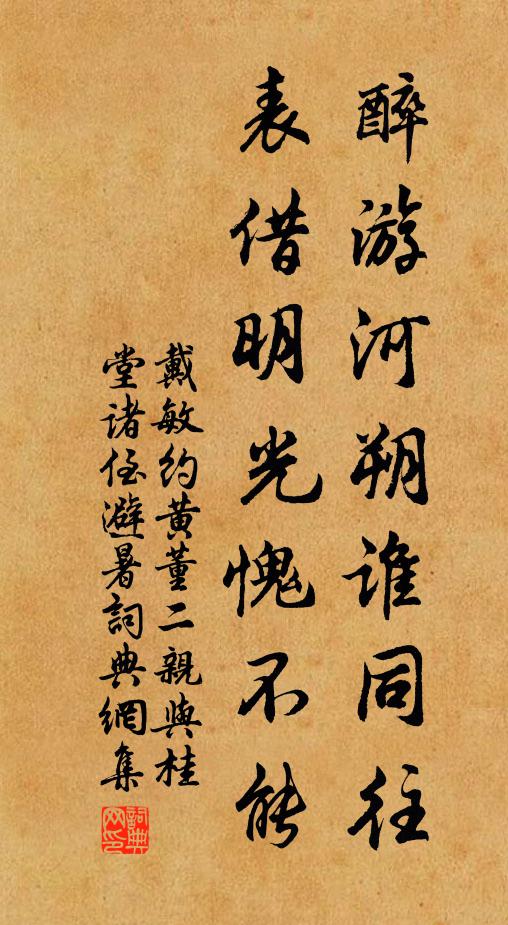 醉游河朔谁同往
表借明光愧不能
戴敏约黄董二親與桂
堂诸侄避暑詞典網集
詞典网印